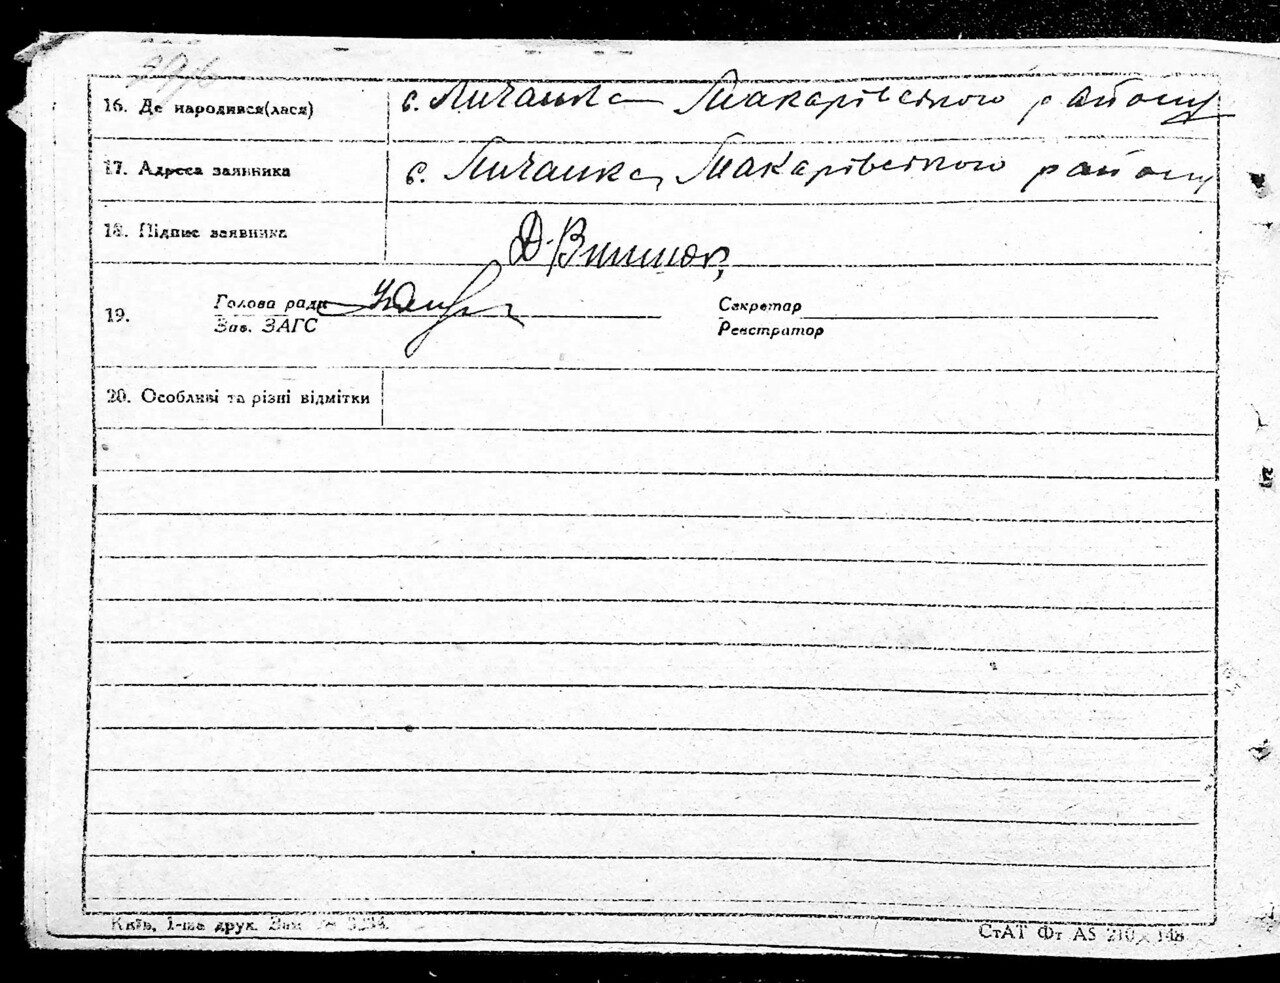 16. Де народився(лася) с. Личанка Макарівського району
17. Адреса заявника с. Личанка, Макарівського району
18. Підпис заявника
19. Голова ради Секретар
Зав. ЗАГС Реєстратор
20. Особливі та різні відмітки
Київ, 1-ша друк. Зам.
СтАТ Фт А5 210 × 148